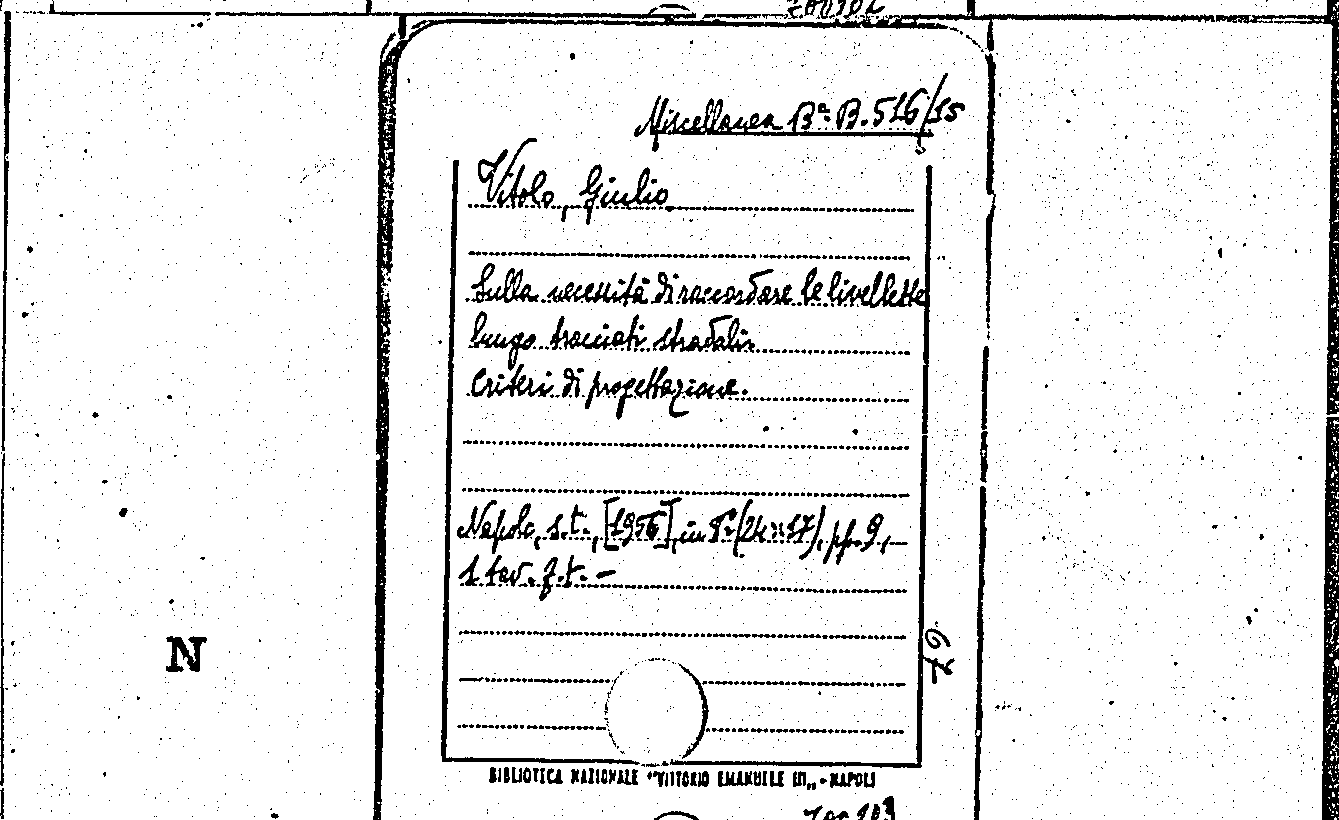 Miscellanea Bª B.516/15
Vitolo, Giulio
Sulla necessità di raccordare le livellette
lungo tracciati stradali.
Criteri di progettazione.
Napoli, s.t., [1956], in 8°. (24x17), pp. 9,-
1 tav. f.t. -
N
79
BIBLIOTECA NAZIONALE "VITTORIO EMANUELE III„ - NAPOLI